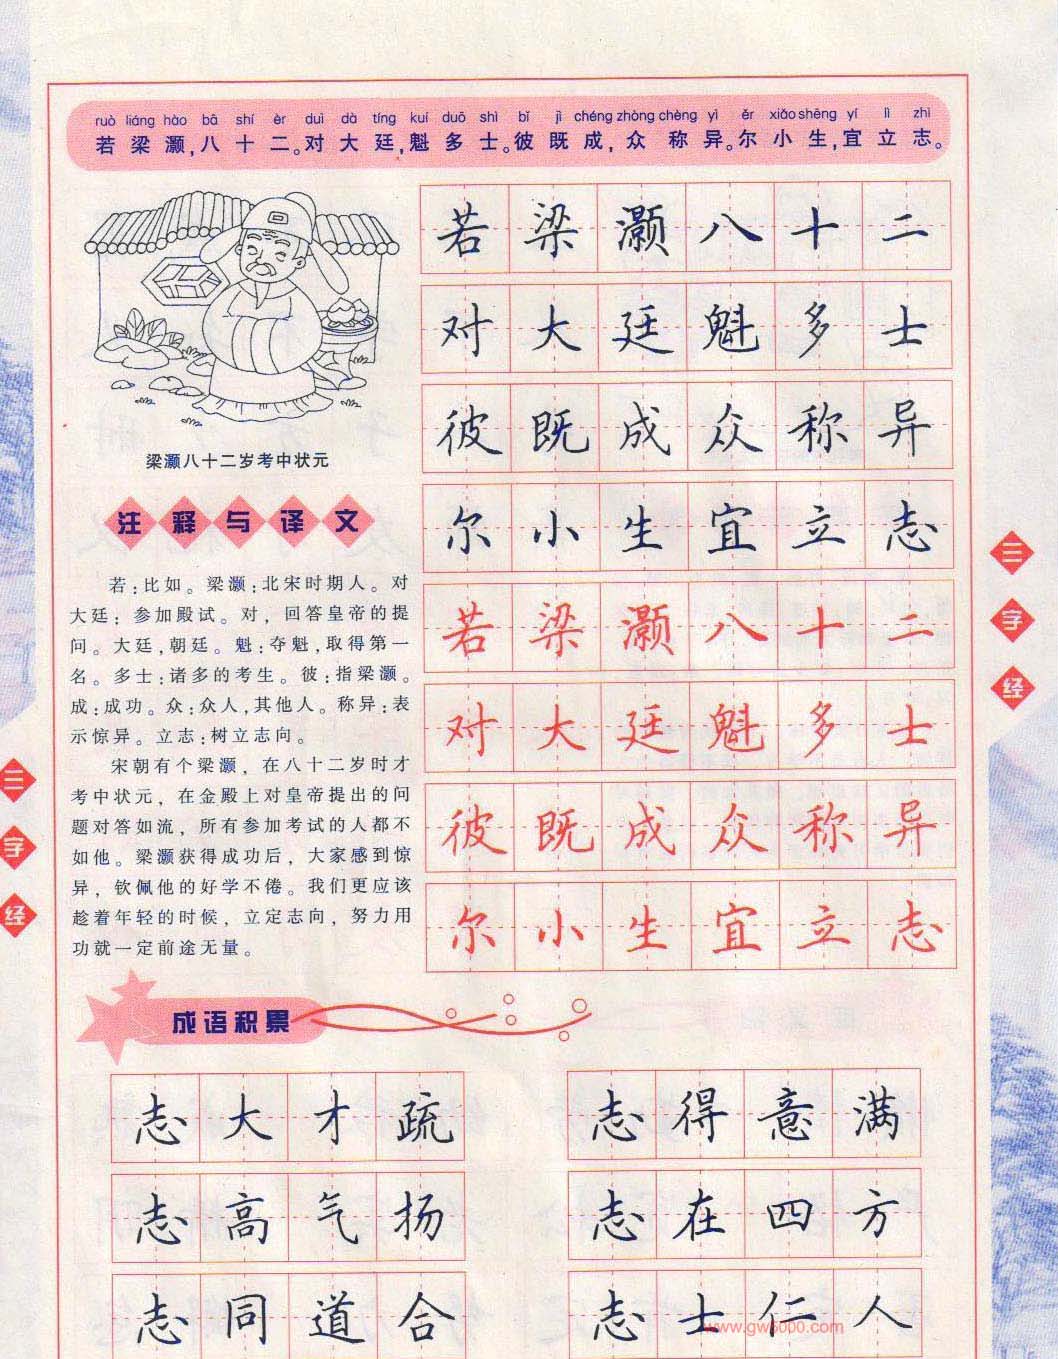 ruò liáng hào bā shí èr duì dà tíng kuí duō shì bǐ jì chéng zhòng chèng yì ěr xiǎo shēng yí lì zhì
若梁灏,八十二。对大廷,魁多士。彼既成,众称异。尔小生,宜立志。
梁灏八十二岁考中状元
注释与译文
若:比如。梁灏:北宋时期人。对
大廷:参加殿试。对,回答皇帝的提
问。大廷,朝廷。魁:夺魁,取得第一
名。多士:诸多的考生。彼:指梁灏。
成:成功。众:众人,其他人。称异:表
示惊异。立志:树立志向。
宋朝有个梁灏,在八十二岁时才
考中状元,在金殿上对皇帝提出的问
题对答如流,所有参加考试的人都不
如他。梁灏获得成功后,大家感到惊
异,钦佩他的好学不倦。我们更应该
趁着年轻的时候,立定志向,努力用
功就一定前途无量。
若梁灏八十二
对大廷魁多士
彼既成众称异
尔小生宜立志
若梁灏八十二
对大廷魁多士
彼既成众称异
尔小生宜立志
三字经
三字经
成语积累
志大才疏
志得意满
志高气扬
志在四方
志同道合
志士仁人
www.gw5000.com